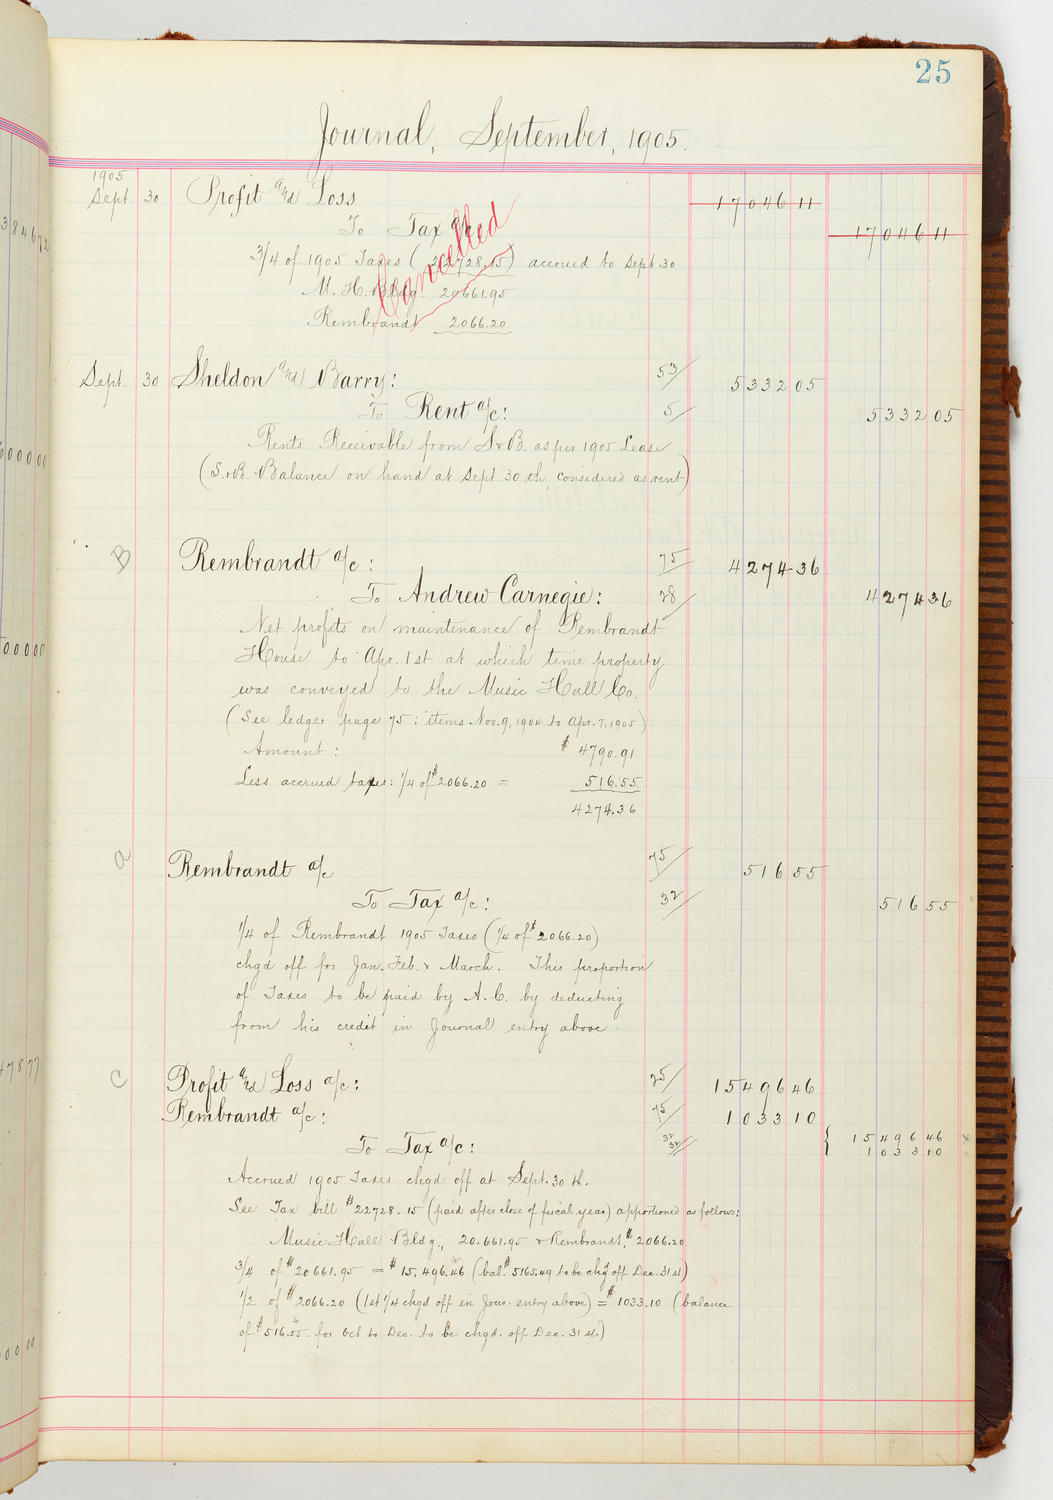 25
Journal, September, 1905.
1905
Sept. 30 Profit and Loss 17046 11
To Tax a/c 17046 11
Cancelled
3/4 of 1905 Taxes (22728.15) accrued to Sept 30
M. H. Bldg. 20661.95
Rembrandt 2066.20
Sept. 30 Sheldon and Barry: 53/ 5332 05
To Rent a/c: 5/ 5332 05
Rents Receivable from S&B. as per 1905 Lease
(S.&B. Balance on hand at Sept. 30th, considered as rent)
B Rembrandt a/c: 75/ 4274 36
To Andrew Carnegie: 28/ 4274 36
Net profits on maintenance of Rembrandt
House to Apr. 1st at which time property
was conveyed to the Music Hall Co.
(See ledger page 75: items Nov. 9, 1904 to Apr. 7, 1905)
Amount: $ 4790.91
Less accrued taxes: 1/4 of $2066.20 = 516.55
4274.36
a Rembrandt a/c 75/ 516 55
To Tax a/c: 32/ 516 55
1/4 of Rembrandt 1905 Taxes (1/4 of $2066.20)
chgd off for Jan. Feb. & March. This proportion
of Taxes to be paid by A. C. by deducting
from his credit in Journal entry above.
C Profit and Loss a/c: 25/ 15496 46
Rembrandt a/c: 75/ 1033 10
To Tax a/c: 32/ 32/ { 15496 46
1033 10
Accrued 1905 Taxes chgd off at Sept. 30th.
See Tax bill $22728.15 (paid after close of fiscal year) apportioned as follows:
Music Hall Bldg., 20.661.95 & Rembrandt, $2066.20
3/4 of $20661.95 = $15,496.46 (bal. $5165.49 to be chgd off Dec. 31st)
1/2 of $2066.20 (1st 1/4 chgd off in Jour. entry above) = $1033.10 (balance
of $516.55 for Oct to Dec. to be chgd. off Dec. 31st.)